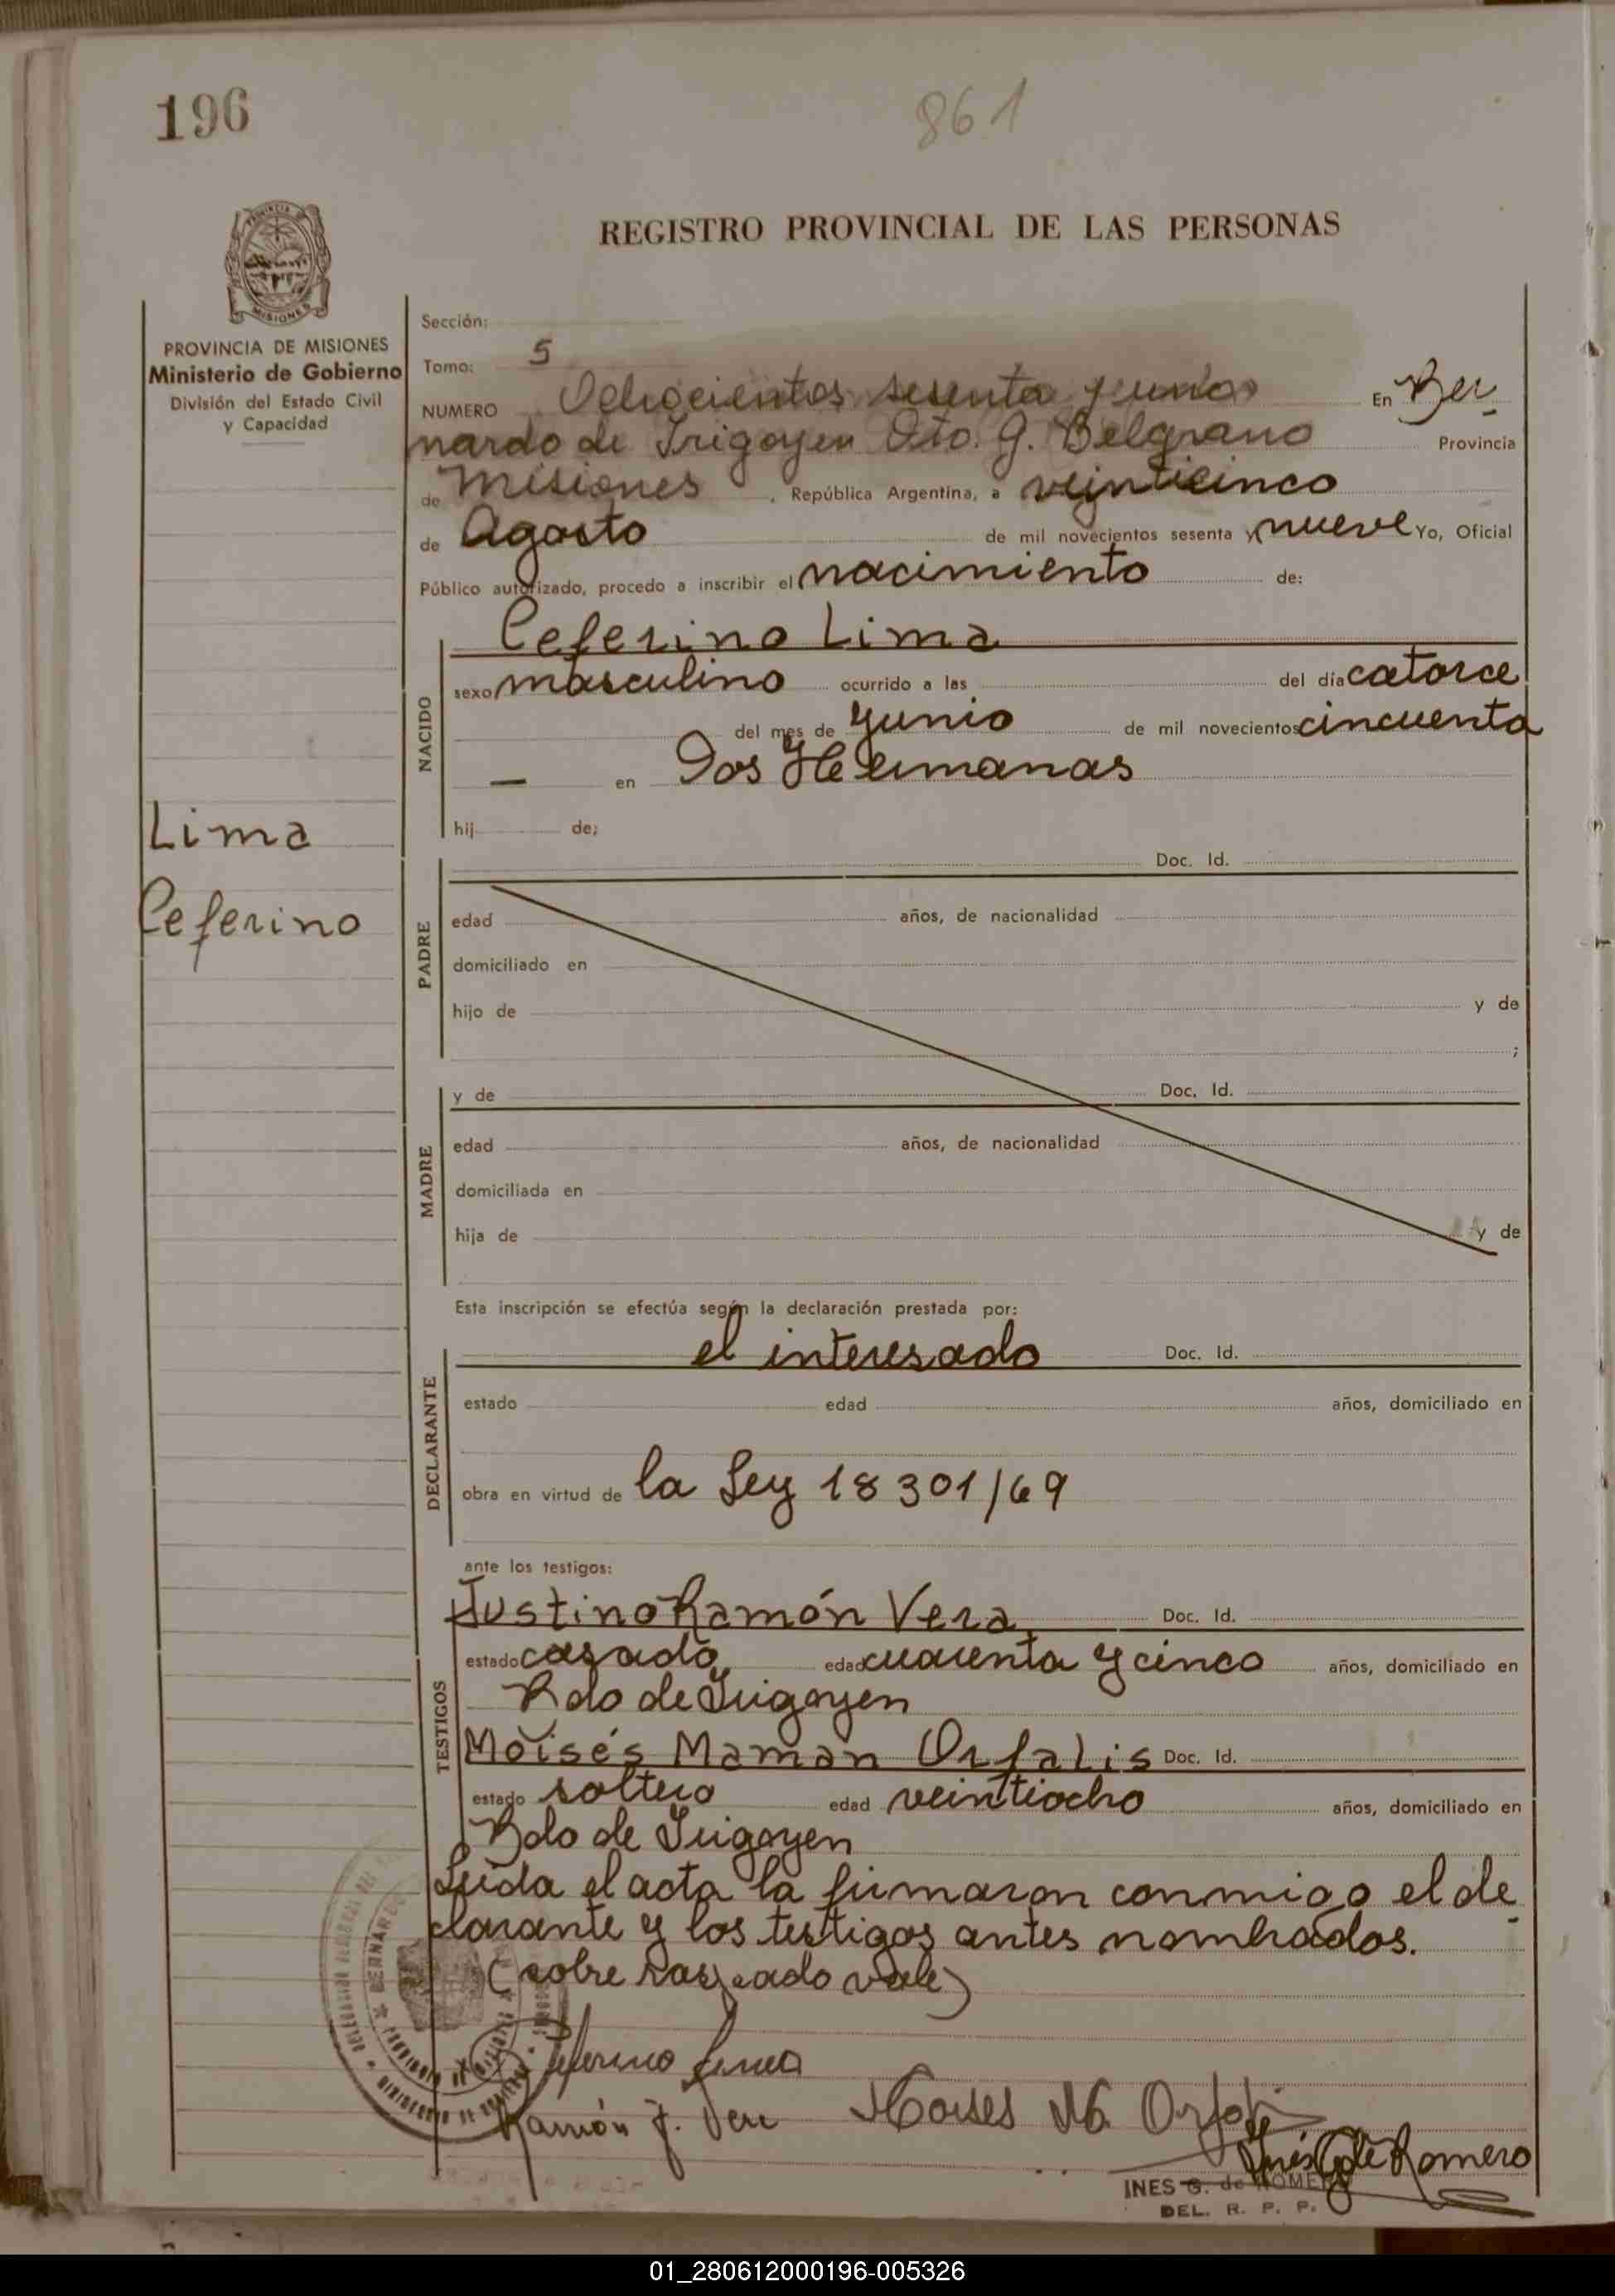 196
861
REGISTRO PROVINCIAL DE LAS PERSONAS
PROVINCIA DE MISIONES
Ministerio de Gobierno
División del Estado Civil
y Capacidad
Sección:
Tomo: 5
NUMERO Ochocientos sesenta y uno En Ber
nardo de Irigoyen Dto. G. Belgrano Provincia
de Misiones, República Argentina, a veinticinco
de Agosto de mil novecientos sesenta y nueve Yo, Oficial
Público autorizado, procedo a inscribir el nacimiento de:
Ceferino Lima
NACIDO
sexo masculino ocurrido a las del día catorce
del mes de Junio de mil novecientos cincuenta
— en Dos Hermanas
hij de;
Lima
Ceferino
PADRE
Doc. Id.
edad años, de nacionalidad
domiciliado en
hijo de y de
;
MADRE
y de Doc. Id.
edad años, de nacionalidad
domiciliada en
hija de y de
Esta inscripción se efectúa según la declaración prestada por:
DECLARANTE
el interesado Doc. Id.
estado edad años, domiciliado en
obra en virtud de la Ley 18301/69
ante los testigos:
TESTIGOS
Justino Ramón Vera Doc. Id.
estado casado edad cuarenta y cinco años, domiciliado en
Bdo de Irigoyen
Moisés Maman Orfalis Doc. Id.
estado soltero edad veintiocho años, domiciliado en
Bdo de Irigoyen
Leída el acta la firmaron conmigo el de
clarante y los testigos antes nombrados.
(sobre raspado vale)
Ceferino Lima
Ramón J. Vera Moises M.
Inés G de Romero
INES G. de ROMERO
DEL. R. P. P.
01_280612000196-005326